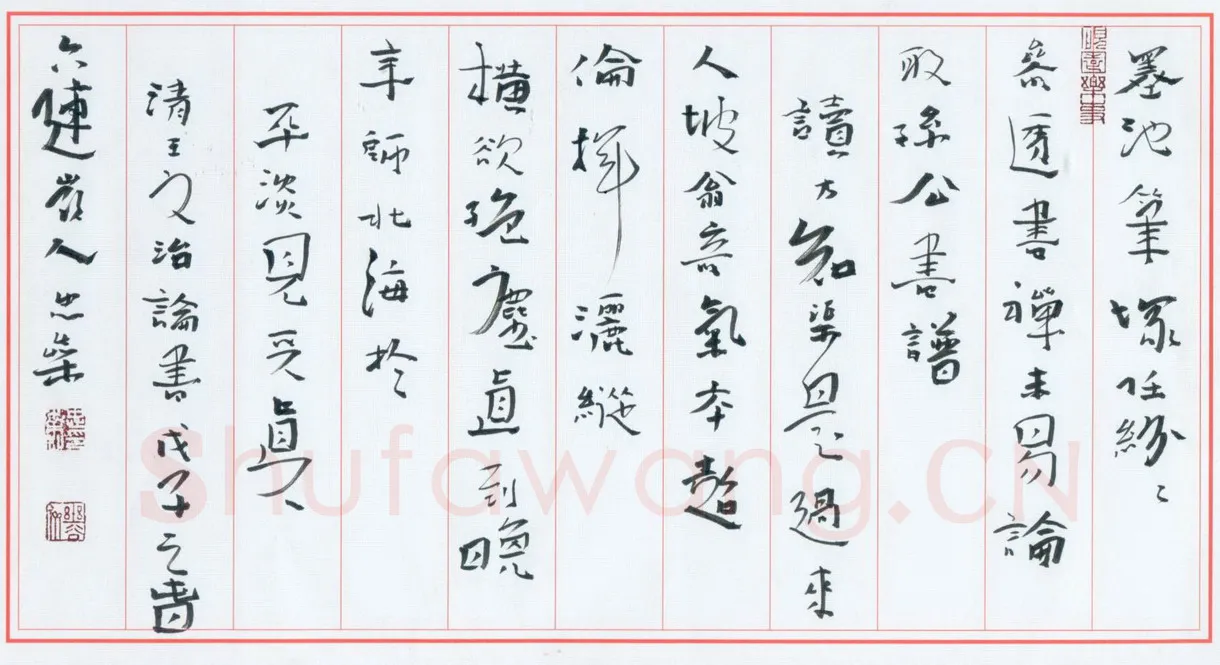 墨池筆塚任紛〻
參透書禪未易論
取孫公書譜
讀方知渠是過來
人坡翁奇氣本超
倫揮灑縱
橫欲絕塵直到晚
年師北海於
平淡見天真
清王文治論書戊子之春
六連嶺人忠柴
Shufawang.CN